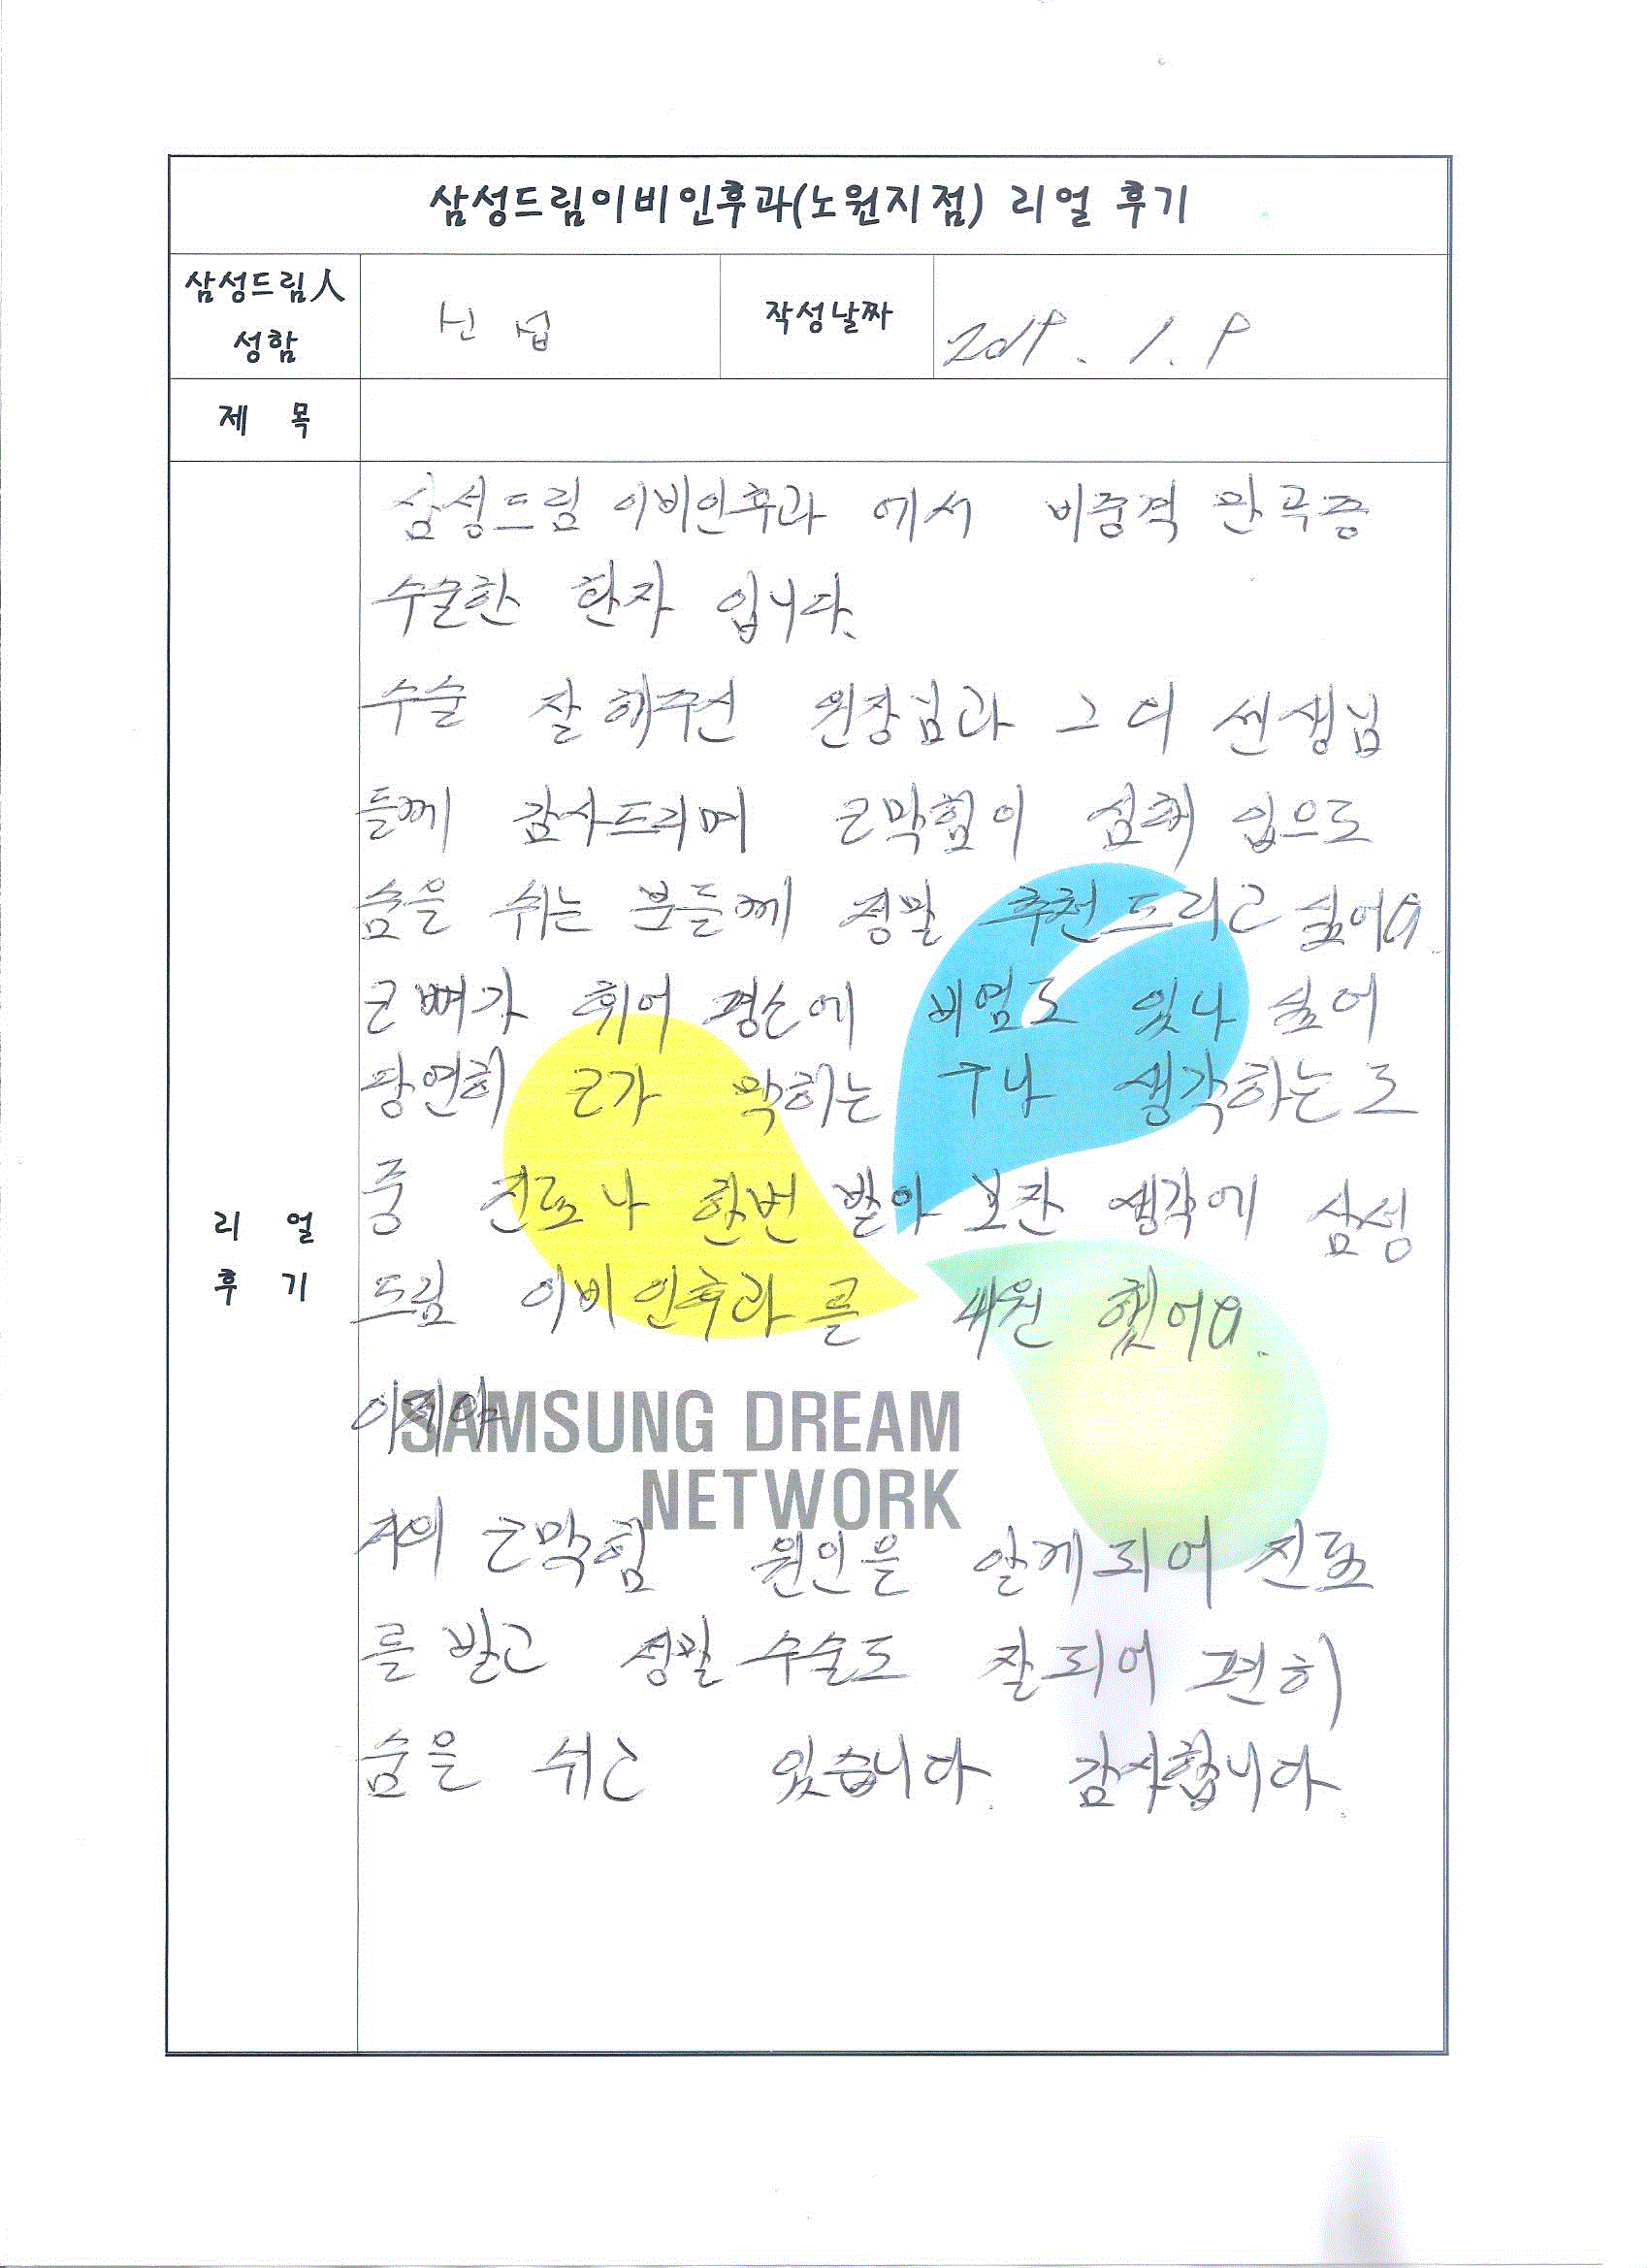 삼성드림이비인후과(노원지점) 리얼 후기
삼성드림人
성함
신 섭
작성날짜
2019. 1. 9
제 목
리 얼
후 기
삼성드림 이비인후과 에서 비중격 만곡증
수술한 환자 입니다.
수술 잘 해주신 원장님과 그 외 선생님
들께 감사드리며 코막힘이 심해 입으로
숨을 쉬는 분들께 정말 추천드리고 싶어요.
코뼈가 휘어 평소에 비염도 있나 싶어
당연히 코가 막히는 구나 생각하는 도
중 진료나 한번 받아 보잔 생각에 삼성
드림 이비인후과를 내원 했어요.
이제야
SAMSUNG DREAM
NETWORK
저의 코막힘 원인을 알게되어 진료
를 받고 정말 수술도 잘되어 편히
숨을 쉬고 있습니다. 감사합니다.